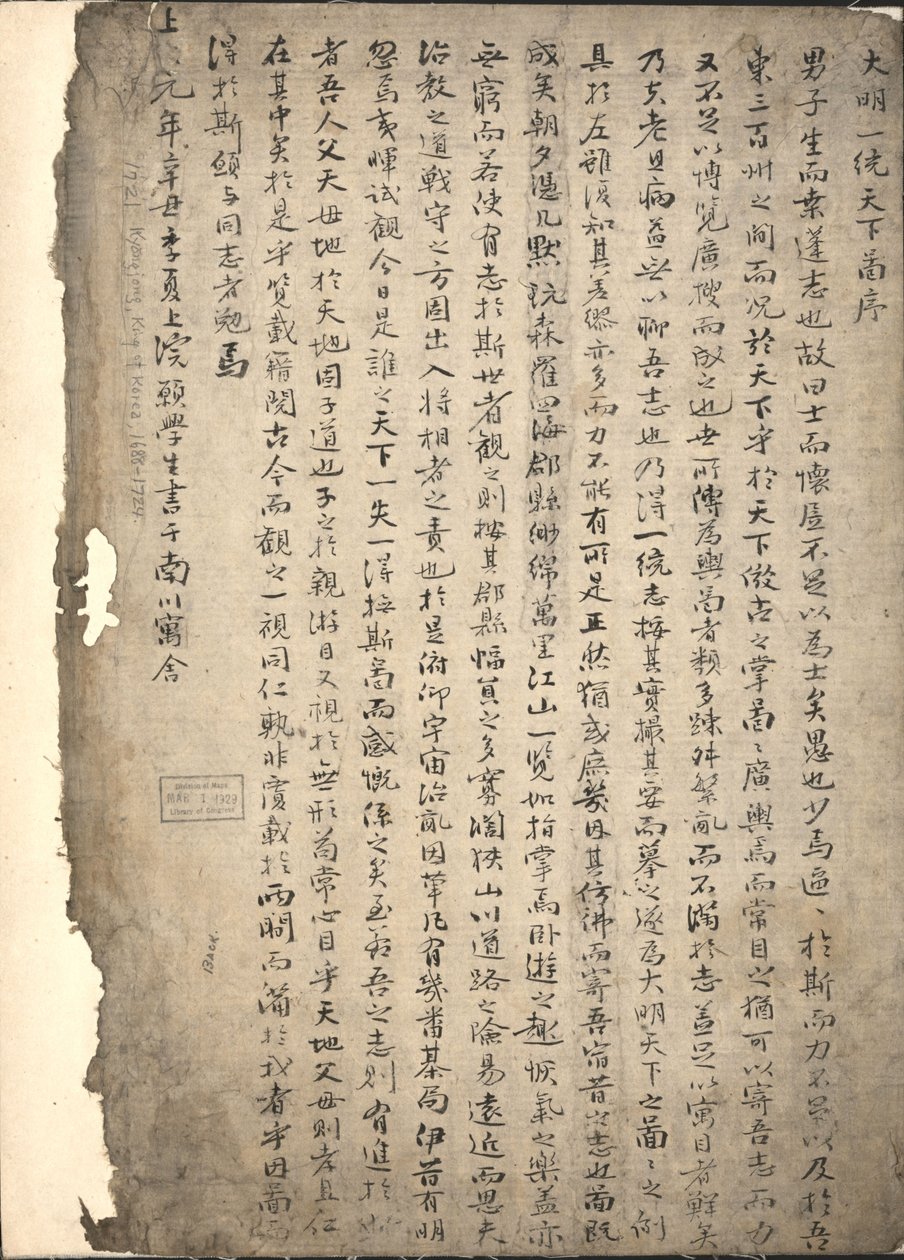 大明一統天下啚序
男子生而桑蓬志也故曰士而懷居不足以為士矣愚也少焉區〻於斯而力不足以及於吾
東三百州之間而況於天下乎於天下倣古之掌啚〻廣輿焉而常目之猶可以寄吾志而力
又不足以博覽廣搜而成之也世所傳為輿啚者類多踈舛繁亂而不滿於志盖足以寓目者鮮矣
乃者老且病益無以聊吾志也乃得一統志按其實撮其要而摹之遂為大明天下之啚〻之例
具於左雖復知其差繆亦多而力不能有所是正然猶或庶幾因其仿彿而寄吾宿昔之志也啚既
成矣朝夕憑几默玩森羅四海郡縣緲綿萬里江山一覽如指掌焉卧遊之趣恢氣之樂盖亦
無窮而若使有志於斯世者觀之則按其郡縣幅員之多寡濶狹山川道路之險易遠近而思夫
治教之道戰守之方固出入將相者之責也於是俯仰宇宙治亂因革凡有幾番棊局伊昔有明
忽焉夷暉試觀今日是誰之天下一失一得撫斯啚而感慨係之矣至若吾之志則有進於
者吾人父天母地於天地固子道也子之於親游目又視於無形苟常心目乎天地父母則孝且仁
在其中矣於是乎覽載籍閱古今而觀之一視同仁孰非覆載於兩間而備於我者乎因啚而
得於斯願与同志者勉焉
上 元年辛丑季夏上浣願學生書于南川寓舍
1721 Kyongjong, King of Korea, 1688-1724.
Back.
Division of Maps
MAR 1 1929
Library of Congress